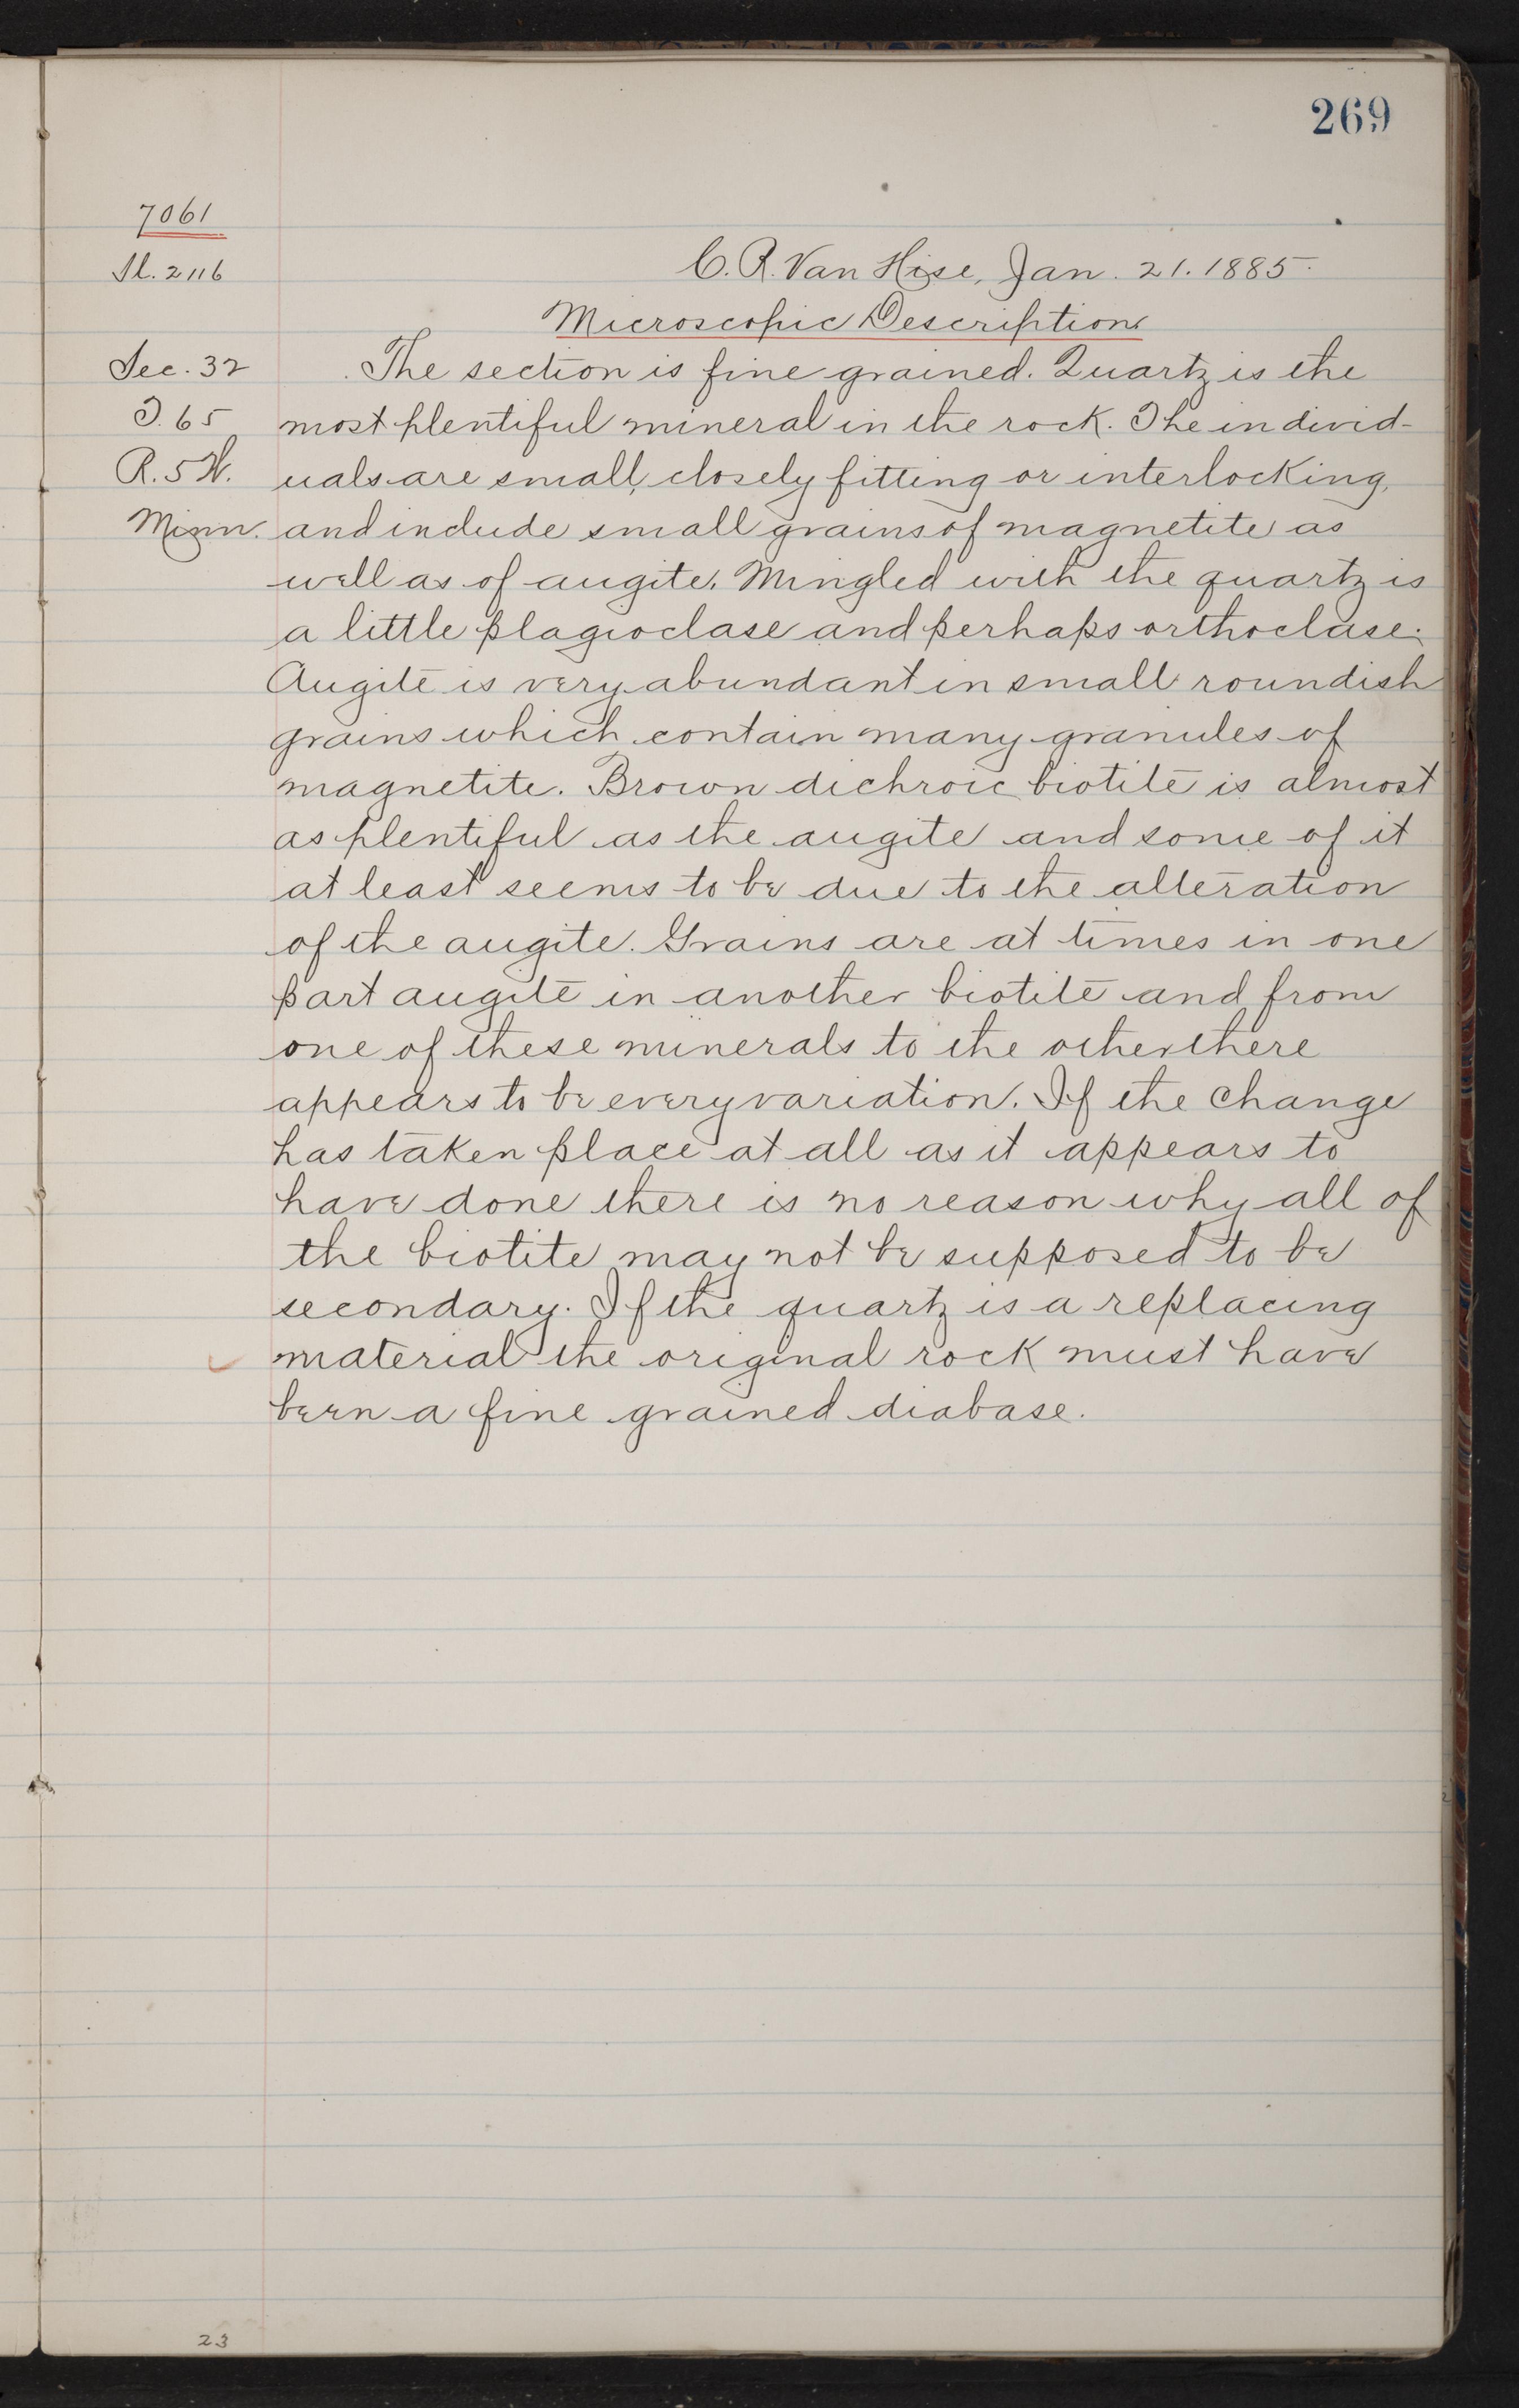 269
7061
Sl. 2116
C. R. Van Hise, Jan. 21. 1885.
Microscopic Description
Sec. 32
The section is fine grained. Quartz is the
T. 65
most plentiful mineral in the rock. The individ-
R. 5 W.
uals are small, closely fitting or interlocking,
Minn.
and include small grains of magnetite as
well as of augite. Mingled with the quartz is
a little plagioclase and perhaps orthoclase.
Augite is very abundant in small roundish
grains which contain many granules of
magnetite. Brown dichroic biotite is almost
as plentiful as the augite and some of it
at least seems to be due to the alteration
of the augite. Grains are at times in one
part augite in another biotite and from
one of these minerals to the other there
appears to be every variation. If the change
has taken place at all as it appears to
have done there is no reason why all of
the biotite may not be supposed to be
secondary. If the quartz is a replacing
material the original rock must have
been a fine grained diabase.
23